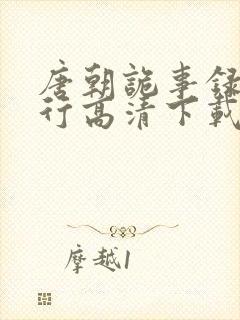 唐朝詭事録
行高清下載
摩越1